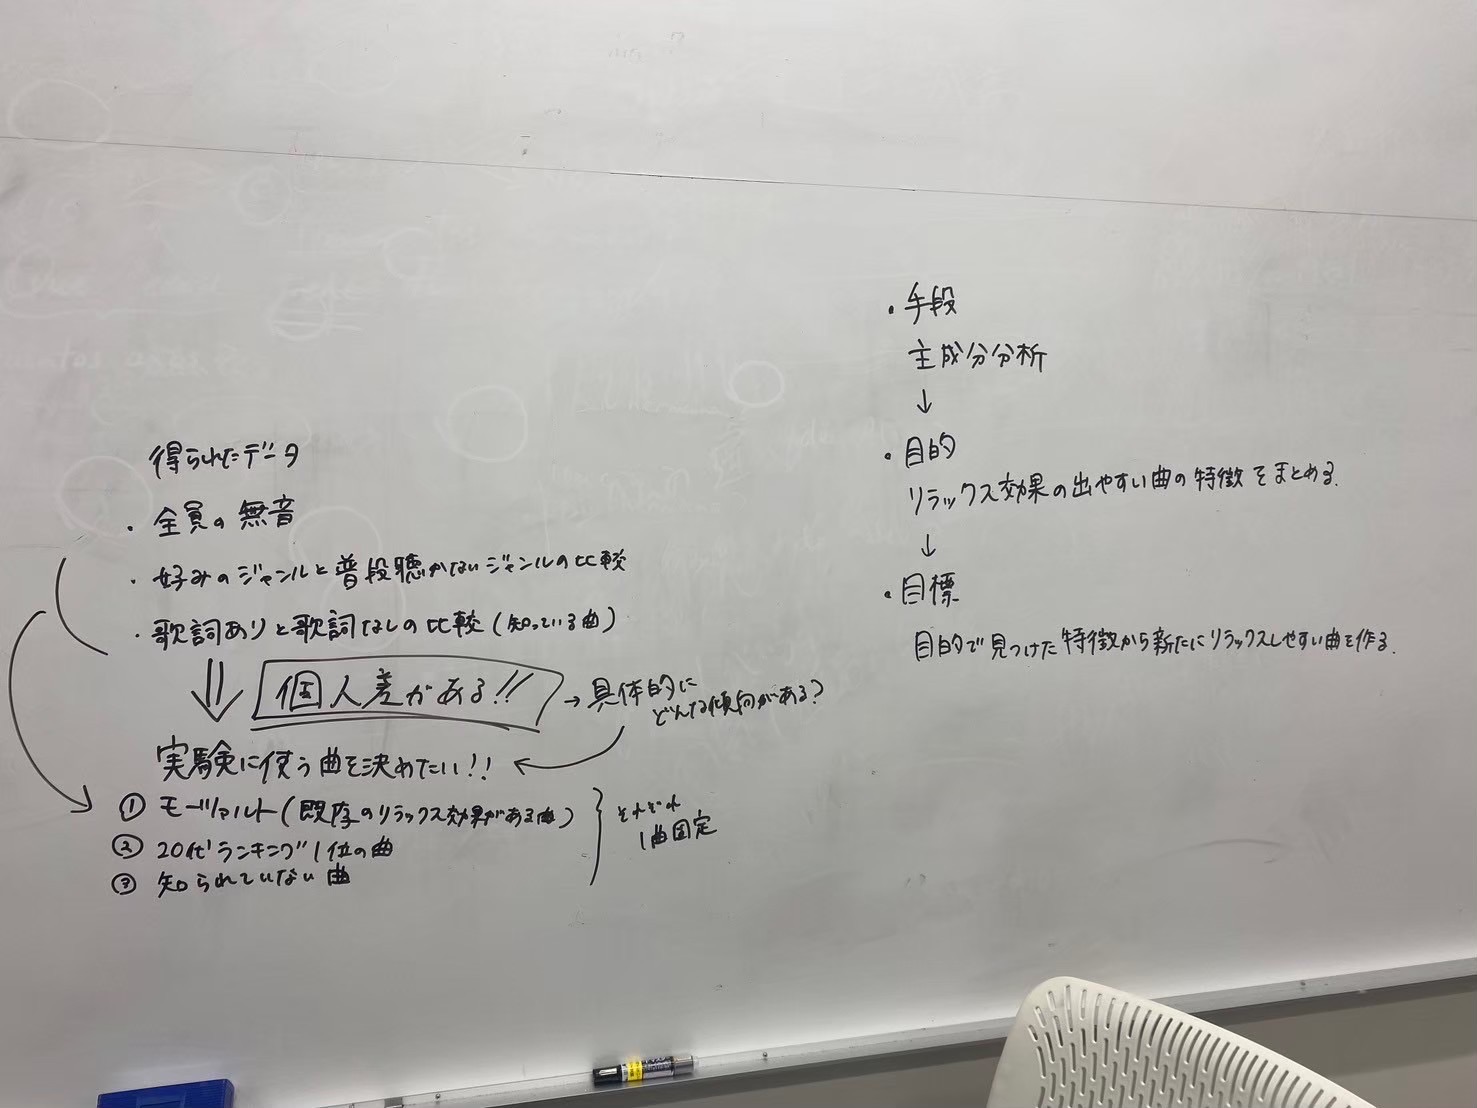 得られたデータ
・全員の無音
・好みのジャンルと普段聴かないジャンルの比較
・歌詞ありと歌詞なしの比較(知っている曲)
⇓ 個人差がある!! → 具体的に
どんな傾向がある?
実験に使う曲を決めたい!! ←
① モーツァルト(既存のリラックス効果がある曲)
② 20代ランキング1位の曲
③ 知られていない曲
それぞれ
1曲固定
・手段
主成分分析
↓
・目的
リラックス効果の出やすい曲の特徴をまとめる.
↓
・目標
目的で見つけた特徴から新たにリラックスしやすい曲を作る.